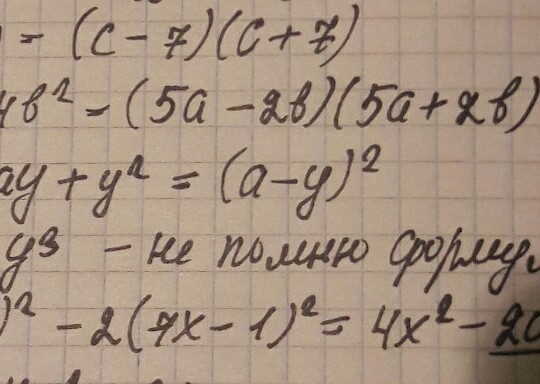 = (c - 7)(c + 7)
4b² = (5a - 2b)(5a + 2b)
ay + y² = (a - y)²
y³ - не помню формул
)² - 2(7x - 1)² = 4x² - 20